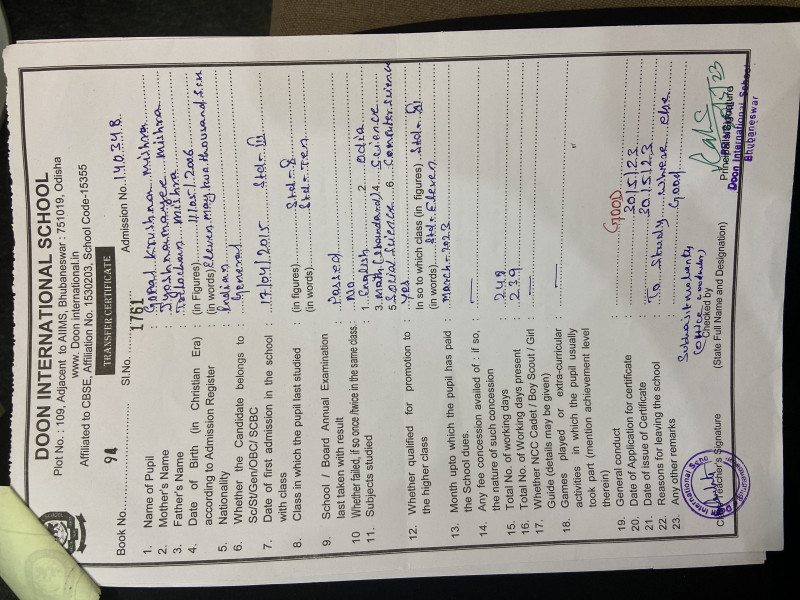 DOON INTERNATIONAL SCHOOL
Plot No. : 109, Adjacent to AIIMS, Bhubaneswar : 751019, Odisha
www. Doon international.in
Affiliated to CBSE, Affiliation No. 1530203, School Code-15355
TRANSFER CERTIFICATE
Book No. 94 Sl.No. 1761 Admission No. 140348
1. Name of Pupil : Gopal Krushna Mishra
2. Mother's Name : Mishra
3. Father's Name : Trilochan Mishra
4. Date of Birth (in Christian Era) (in Figures) 11/05/2006
according to Admission Register (in words) Eleven May two thousand six
5. Nationality : Indian
6. Whether the Candidate belongs to : General
Sc/St/Gen/OBC/ SCBC
7. Date of first admission in the school : 17/04/2015 Std- III
with class
8. Class in which the pupil last studied : (in figures) Std- X
(in words) Std- Ten
9. School / Board Annual Examination : Passed
last taken with result
10 Whether failed, if so once /twice in the same class. No
11. Subjects studied : 1. English 2. Odia
3. Math (Standard) 4. Science
5. Social Science 6. Computer Science
12. Whether qualified for promotion to : Yes In so to which class (in figures) Std- XI
the higher class (in words) Std- Eleven
13. Month upto which the pupil has paid : March- 2023
the School dues.
14. Any fee concession availed of : if so, : —
the nature of such concession
15. Total No. of working days : 248
16. Total No. of Working days present : 239
17. Whether NCC Cadet / Boy Scout / Girl : —
Guide (details may be given)
18. Games played or extra-curricular : —
activities in which the pupil usually
took part (mention achievement level
therein)
19. General conduct : GOOD
20. Date of Application for certificate : 30/5/23
21. Date of issue of Certificate : 30/5/23
22. Reasons for leaving the school : To Study where else
23. Any other remarks : Good
(Office
Checked by
(State Full Name and Designation)
Teacher's Signature
Doon International School
Bhubaneswar